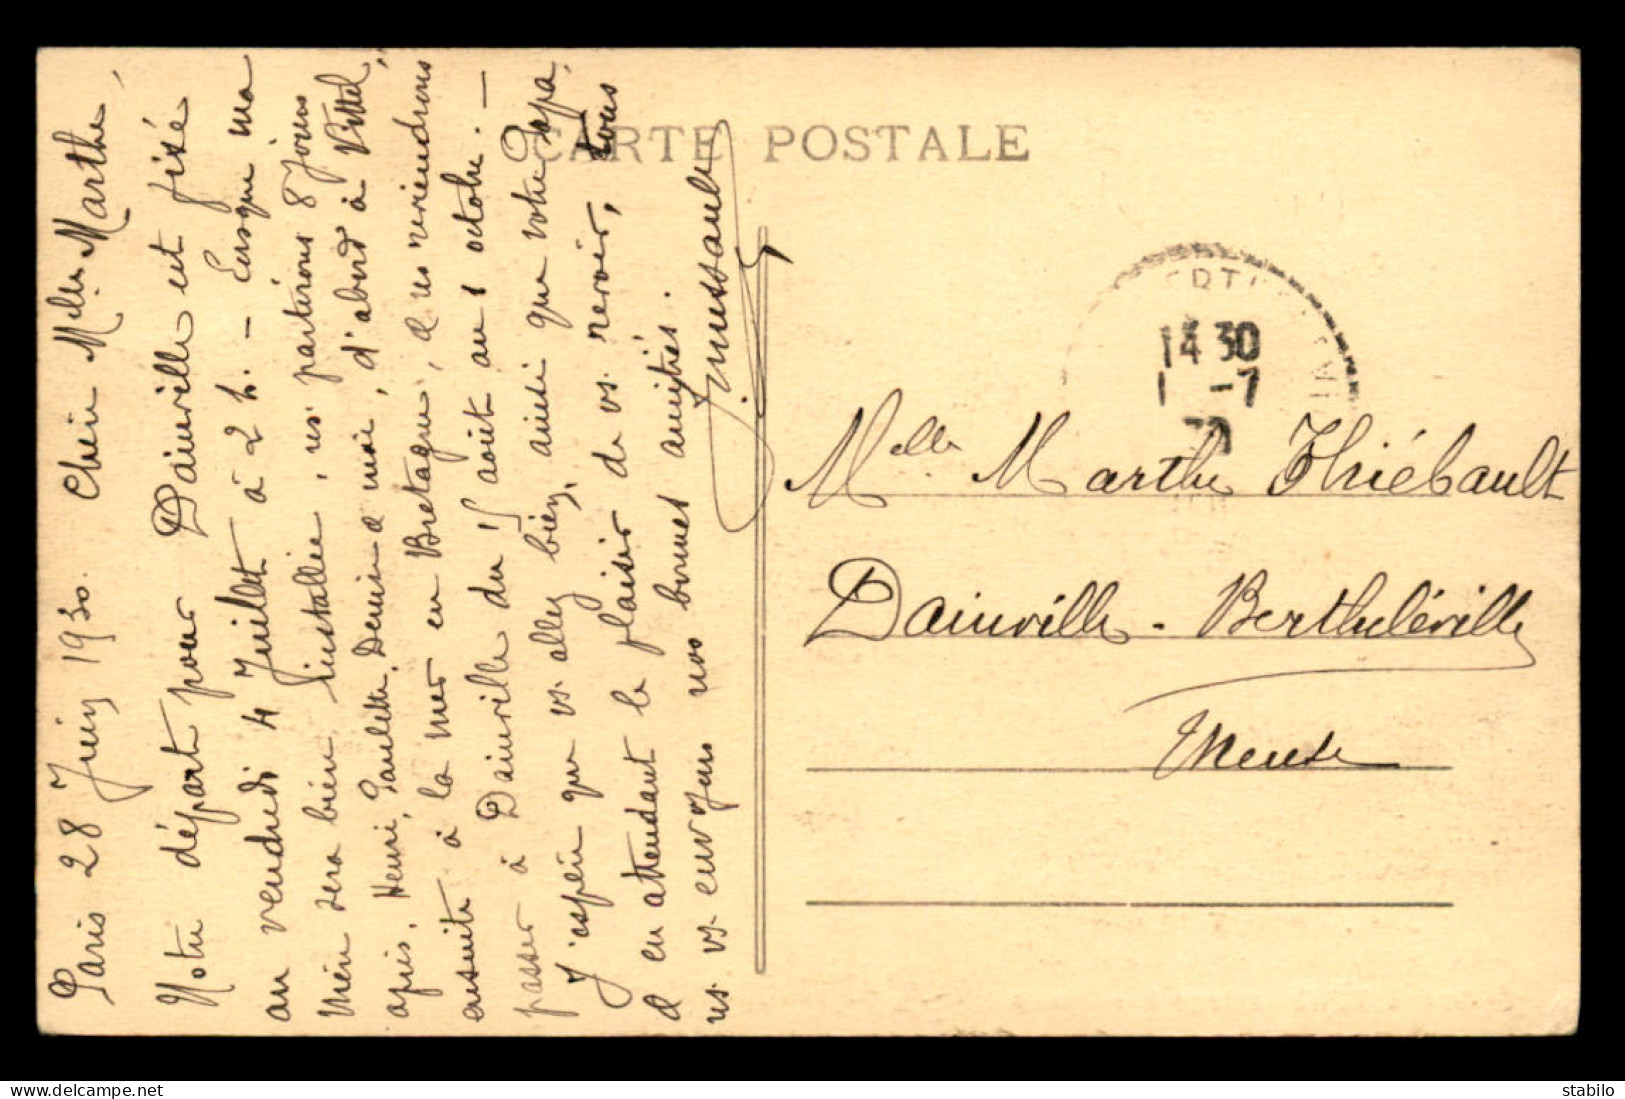 CARTE POSTALE
Paris 28 Juin 1930. Chère Melle Marthe,
Notre départ pour Dainville est fixé
au vendredi 4 Juillet à 2 h. – Lorsque ma
Mère sera bien installée, ns partirons 8 jours
après, Henri, Paulette, Denise & moi, d'abord à Vittel,
ensuite à la mer en Bretagne, & ns reviendrons
passer à Dainville du 15 août au 1 octobre. –
J'espère que vs allez bien, ainsi que votre Papa,
& en attendant le plaisir de vs. revoir, tous
ns. vs. envoyons nos bonnes amitiés.
14 30
1 -7
30
Melle Marthe Thiébault
Dainville - Berthéléville
Meuse
www.delcampe.net
stabilo